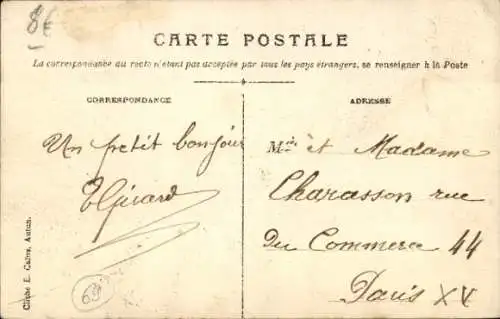 8€
CARTE POSTALE
La correspondance au recto n'étant pas acceptée par tous les pays étrangers, se renseigner à la Poste
CORRESPONDANCE
Un petit bonjour
EGirard
Cliché L. Calive, Autun.
69
ADRESSE
Mr et Madame
Charasson rue
Du Commerce 44
Paris XV